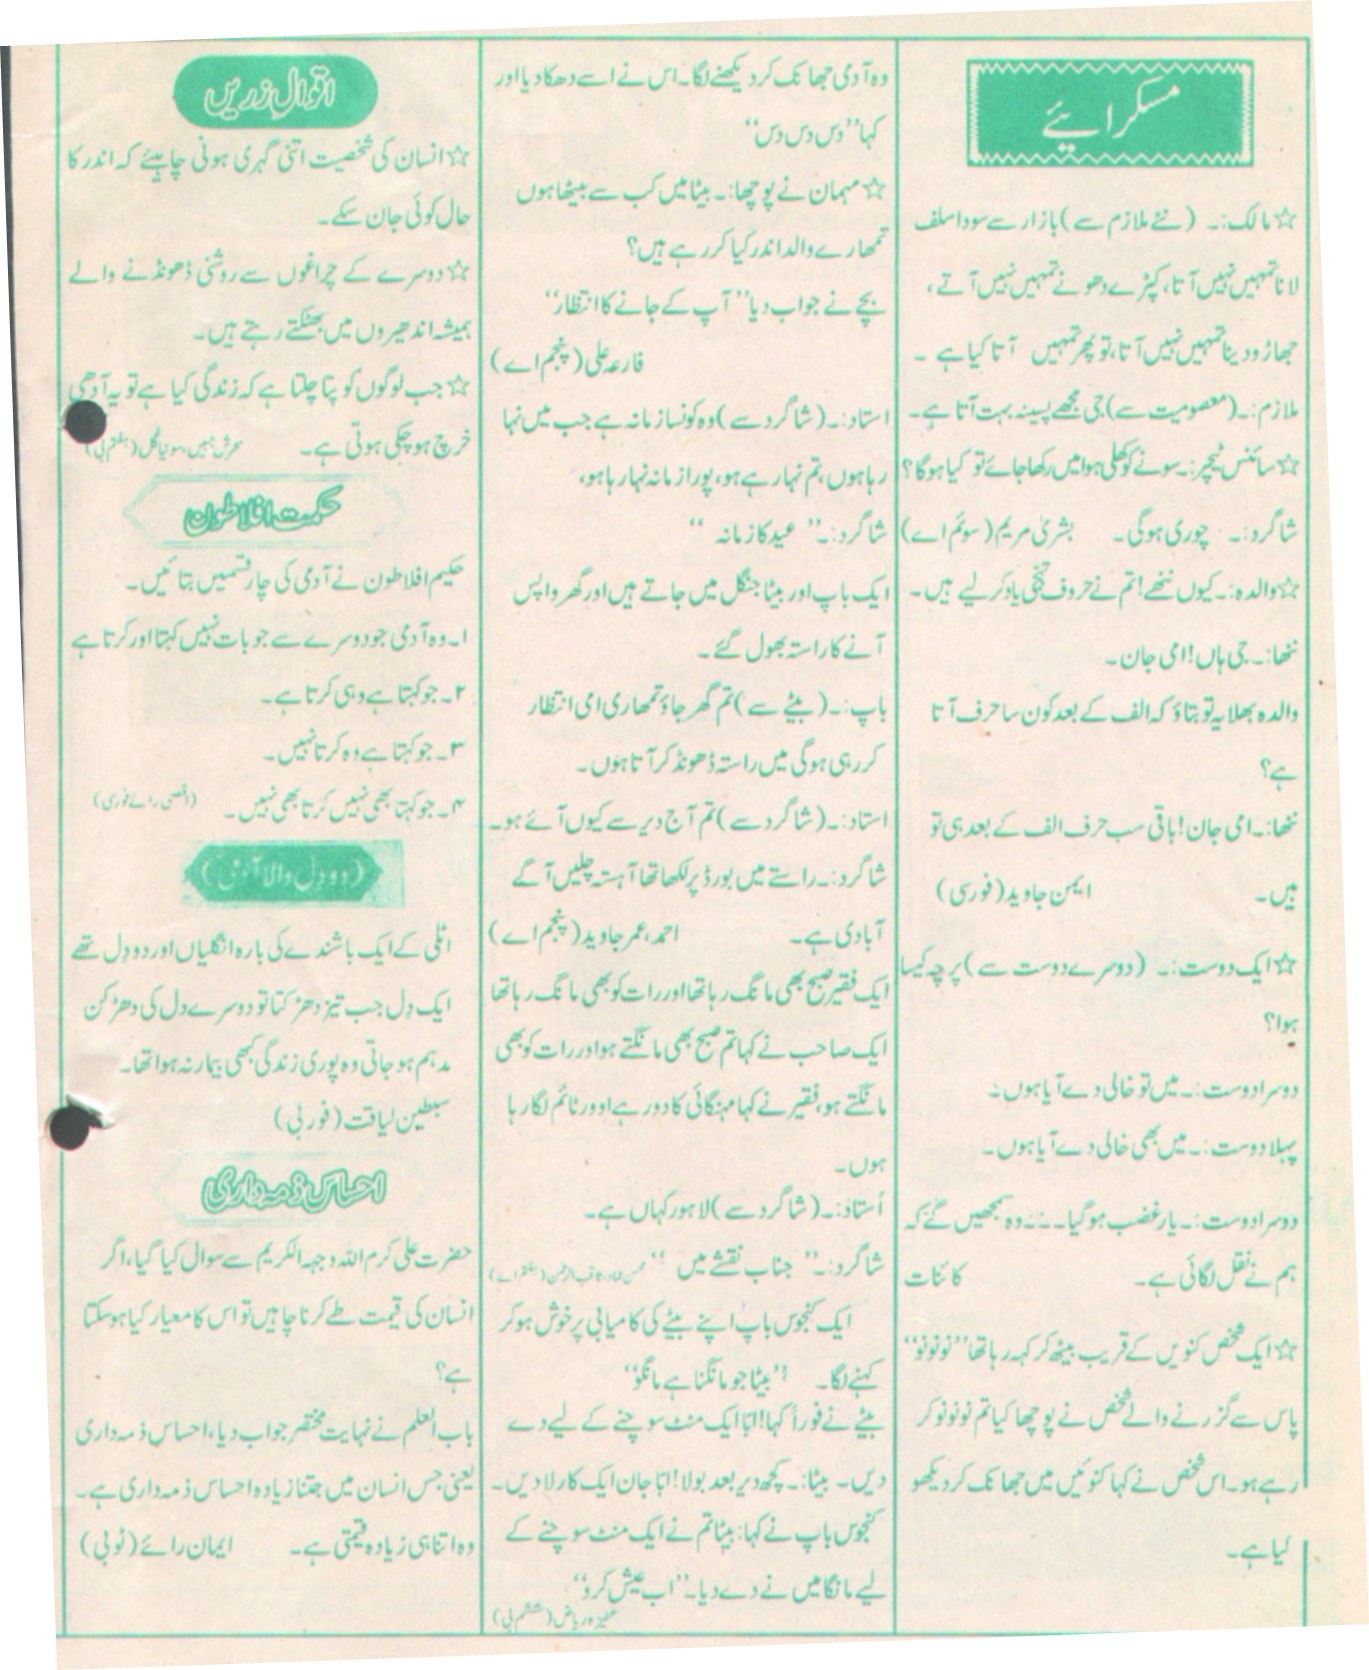 مسکرائیے
☆ مالک:۔ (نئے ملازم سے) بازار سے سودا سلف
لانا تمہیں نہیں آتا، کپڑے دھونے تمہیں نہیں آتے،
جھاڑو دینا تمہیں نہیں آتا، تو پھر تمہیں آتا کیا ہے ۔
ملازم:۔ (معصومیت سے) جی مجھے پسینہ بہت آتا ہے۔
☆ سائنس ٹیچر:۔ سونے کو کھلی ہوا میں رکھا جائے تو کیا ہوگا؟
شاگرد:۔ چوری ہوگی۔ بشریٰ مریم (سوئم اے)
☆ والدہ:۔ کیوں ننھے! تم نے حروف تہجی یاد کر لیے ہیں۔
ننھا:۔ جی ہاں! امی جان۔
والدہ بھلا یہ تو بتاؤ کہ الف کے بعد کون سا حرف آتا
ہے؟
ننھا:۔ امی جان! باقی سب حرف الف کے بعد ہی تو
ہیں۔ ایمن جاوید (فورسی)
☆ ایک دوست:۔ (دوسرے دوست سے) پرچہ کیسا
ہوا؟
دوسرا دوست:۔ میں تو خالی دے آیا ہوں۔
پہلا دوست:۔ میں بھی خالی دے آیا ہوں۔
دوسرا دوست:۔ یار غضب ہو گیا۔۔۔ وہ سمجھیں گے کہ
ہم نے نقل لگائی ہے۔ کائنات
☆ ایک شخص کنویں کے قریب بیٹھ کر کہہ رہا تھا ”نو نو نو“
پاس سے گزرنے والے شخص نے پوچھا کیا تم نو نو نو کر
رہے ہو۔ اس شخص نے کہا کنوئیں میں جھانک کر دیکھو
کیا ہے۔
وہ آدمی جھانک کر دیکھنے لگا۔ اس نے اسے دھکا دیا اور
کہا ”دس دس دس“
☆ مہمان نے پوچھا:۔ بیٹا میں کب سے بیٹھا ہوں
تمھارے والد اندر کیا کر رہے ہیں؟
بچے نے جواب دیا ”آپ کے جانے کا انتظار“
فارعہ علی (پنجم اے)
استاد:۔ (شاگرد سے) وہ کونسا زمانہ ہے جب میں نہا
رہا ہوں، تم نہا رہے ہو، پورا زمانہ نہا رہا ہو،
شاگرد:۔ ” عید کا زمانہ “
ایک باپ اور بیٹا جنگل میں جاتے ہیں اور گھر واپس
آنے کا راستہ بھول گئے ۔
باپ:۔ (بیٹے سے) تم گھر جاؤ تمھاری امی انتظار
کر رہی ہوگی میں راستہ ڈھونڈ کر آتا ہوں۔
استاد:۔ (شاگرد سے) تم آج دیر سے کیوں آئے ہو۔
شاگرد:۔ راستے میں بورڈ پر لکھا تھا آہستہ چلیں آگے
آبادی ہے۔ احمد، عمر جاوید (پنجم اے)
ایک فقیر صبح بھی مانگ رہا تھا اور رات کو بھی مانگ رہا تھا
ایک صاحب نے کہا تم صبح بھی مانگتے ہو اور رات کو بھی
مانگتے ہو، فقیر نے کہا مہنگائی کا دور ہے اوور ٹائم لگا رہا
ہوں۔
اُستاد:۔ (شاگرد سے) لاہور کہاں ہے۔
شاگرد:۔ ” جناب نقشے میں “ (ہفتم اے)
ایک کنجوس باپ اپنے بیٹے کی کامیابی پر خوش ہو کر
کہنے لگا۔ ”بیٹا جو مانگنا ہے مانگو“
بیٹے نے فوراً کہا! ابا ایک منٹ سوچنے کے لیے دے
دیں۔ بیٹا:۔ کچھ دیر بعد بولا! ابا جان ایک کار لا دیں۔
کنجوس باپ نے کہا: بیٹا تم نے ایک منٹ سوچنے کے
لیے مانگا میں نے دے دیا۔ ”اب عیش کرو“
ریاض (ششم بی)
اقوالِ زریں
☆ انسان کی شخصیت اتنی گہری ہونی چاہیئے کہ اندر کا
حال کوئی جان سکے۔
☆ دوسرے کے چراغوں سے روشنی ڈھونڈنے والے
ہمیشہ اندھیروں میں بھٹکتے رہتے ہیں۔
☆ جب لوگوں کو پتا چلتا ہے کہ زندگی کیا ہے تو یہ آدھی
خرچ ہو چکی ہوتی ہے۔ سحرش جبیں، سونیا گل (ہفتم بی)
حکمت افلاطون
حکیم افلاطون نے آدمی کی چار قسمیں بتائیں۔
۱۔ وہ آدمی جو دوسرے سے جو بات نہیں کہتا اور کرتا ہے
۲۔ جو کہتا ہے وہی کرتا ہے۔
۳۔ جو کہتا ہے وہ کرتا نہیں۔
۴۔ جو کہتا بھی نہیں کرتا بھی نہیں۔ (اقصیٰ رائے فورسی)
(دو دِل والا آدمی)
اٹلی کے ایک باشندے کی بارہ انگلیاں اور دو دِل تھے
ایک دِل جب تیز دھڑکتا تو دوسرے دل کی دھڑکن
مدہم ہو جاتی وہ پوری زندگی کبھی بیمار نہ ہوا تھا۔
سبطین لیاقت (فور بی)
احساس ذمہ داری
حضرت علی کرم اللہ وجہہ الکریم سے سوال کیا گیا، اگر
انسان کی قیمت طے کرنا چاہیں تو اس کا معیار کیا ہو سکتا
ہے؟
باب العلم نے نہایت مختصر جواب دیا، احساسِ ذمہ داری
یعنی جس انسان میں جتنا زیادہ احساس ذمہ داری ہے۔
وہ اتنا ہی زیادہ قیمتی ہے۔ ایمان رائے (ٹو بی)